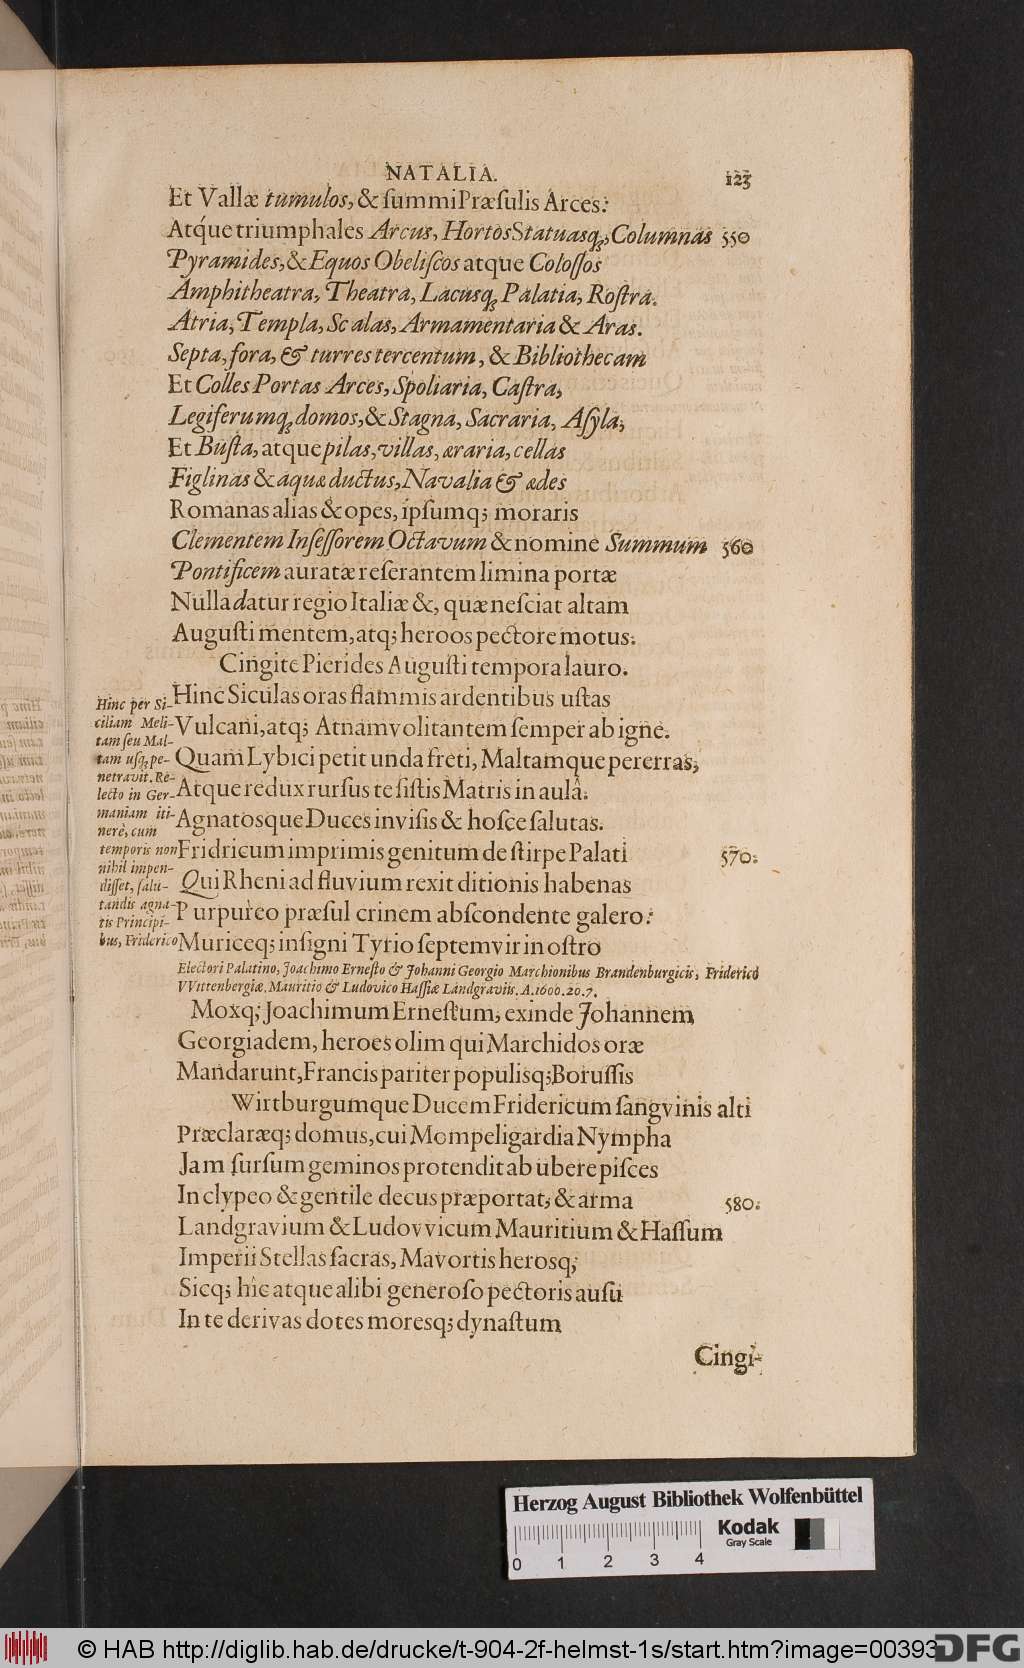 NATALIA. 123
Et Vallæ tumulos, & ſummi Præſulis Arces:
Atq́ue triumphales Arcus, Hortos Statuasq;, Columnas 550
Pyramides, & Equos Obeliſcos atque Coloſſos
Amphitheatra, Theatra, Lacusq; Palatia, Roſtra.
Atria, Templa, Scalas, Armamentaria & Aras.
Septa, fora, & turres tercentum, & Bibliothecam
Et Colles Portas Arces, Spoliaria, Caſtra,
Legiferumq; domos, & Stagna, Sacraria, Aſyla,
Et Buſta, atque pilas, villas, æraria, cellas
Figlinas & aquæ ductus, Navalia & ædes
Romanas alias & opes, ipſumq; moraris
Clementem Inſeſſorem Octavum & nomine Summum 560
Pontificem auratæ reſerantem limina portæ
Nulla datur regio Italiæ &, quæ neſciat altam
Auguſti mentem, atq; heroos pectore motus.
Cingite Pierides Auguſti tempora lauro.
Hinc Siculas oras flammis ardentibus uſtas
Vulcani, atq; Atnam volitantem ſemper ab igne.
Quam Lybici petit unda freti, Maltamque pererras,
Atque redux rurſus te ſiſtis Matris in aulâ.
Agnatosque Duces inviſis & hoſce ſalutas.
Fridricum imprimis genitum de ſtirpe Palati 570.
Qui Rheni ad fluvium rexit ditionis habenas
Purpureo præſul crinem abſcondente galero:
Muriceq; inſigni Tyrio ſeptemvir in oſtro
Hinc per Si-
ciliam Meli-
tam ſeu Mal-
tam uſq; pe-
netravit. Re-
lecto in Ger-
maniam iti-
nere, cum
temporis non
nihil impen-
diſſet, ſalu-
tandis agna-
tis Principi-
bus, Friderico
Electori Palatino, Joachimo Erneſto & Johanni Georgio Marchionibus Brandenburgicis, Friderico
VVittenbergiæ. Mauritio & Ludovico Haſſiæ Landgraviis. A. 1600. 20. 7.
Moxq; Joachimum Erneſtum, exinde Johannem
Georgiadem, heroes olim qui Marchidos oræ
Mandarunt, Francis pariter populisq; Boruſſis
Wirtburgumque Ducem Fridericum ſangvinis alti
Præclaræq; domus, cui Mompeligardia Nympha
Jam ſurſum geminos protendit ab ubere piſces
In clypeo & gentile decus præportat, & arma 580.
Landgravium & Ludovvicum Mauritium & Haſſum
Imperii Stellas ſacras, Mavortis herosq;
Sicq; hîc atque alibi generoſo pectoris auſu
In te derivas dotes moresq; dynaſtum
Cingi-
Herzog August Bibliothek Wolfenbüttel
Kodak
Gray Scale
0 1 2 3 4
© HAB http://diglib.hab.de/drucke/t-904-2f-helmst-1s/start.htm?image=00393
DFG